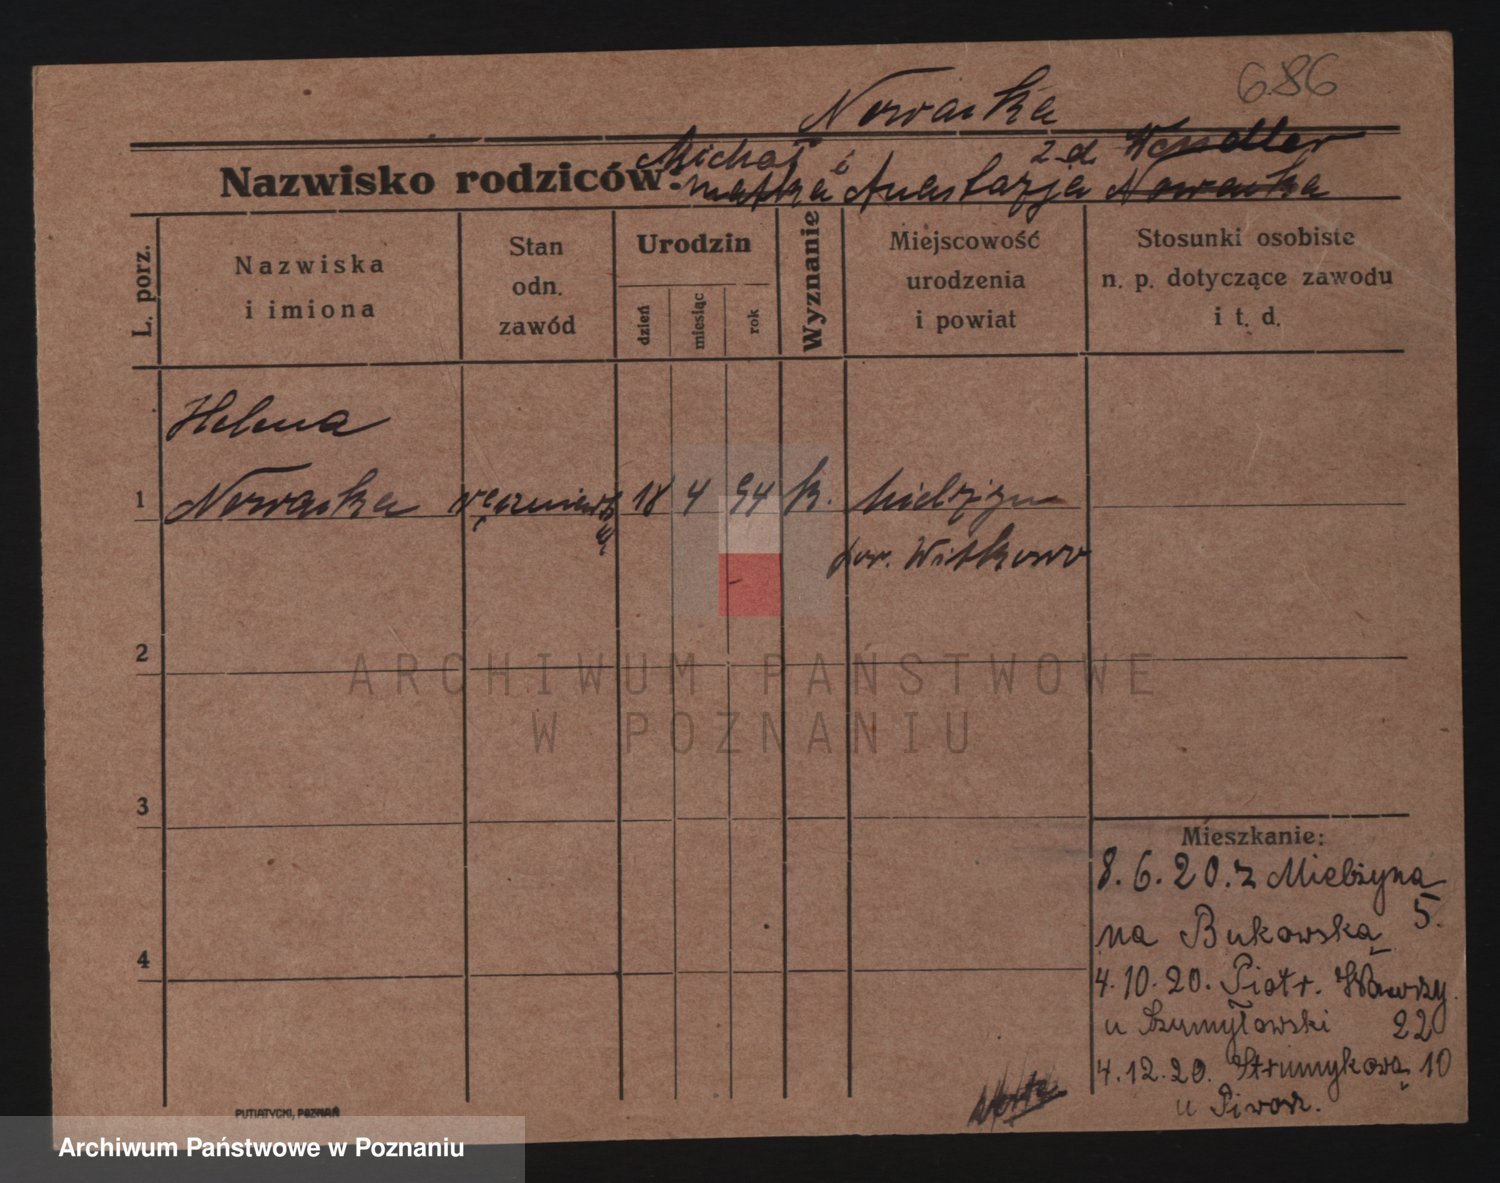 686
Nowacka
Michał i 2-d. Wendler
Nazwisko rodziców: matka Anastazja Nowacka
L. porz.
Nazwiska i imiona
Stan odn. zawód
Urodzin
dzień
miesiąc
rok
Wyznanie
Miejscowość urodzenia i powiat
Stosunki osobiste n. p. dotyczące zawodu i t. d.
Helena
1 Nowacka 18 4 94 k. Mielżyn
pow. Witkowo
2
3
4
Mieszkanie:
8.6.20. z Mielżyna
na Bukowską 5.
4.10.20. Piotr. Wawrzy. 22
u Szumyłowski
4.12.20. Strumykowa 10
u
PUTIATYCKI, POZNAŃ
ARCHIWUM PAŃSTWOWE
W POZNANIU
Archiwum Państwowe w Poznaniu